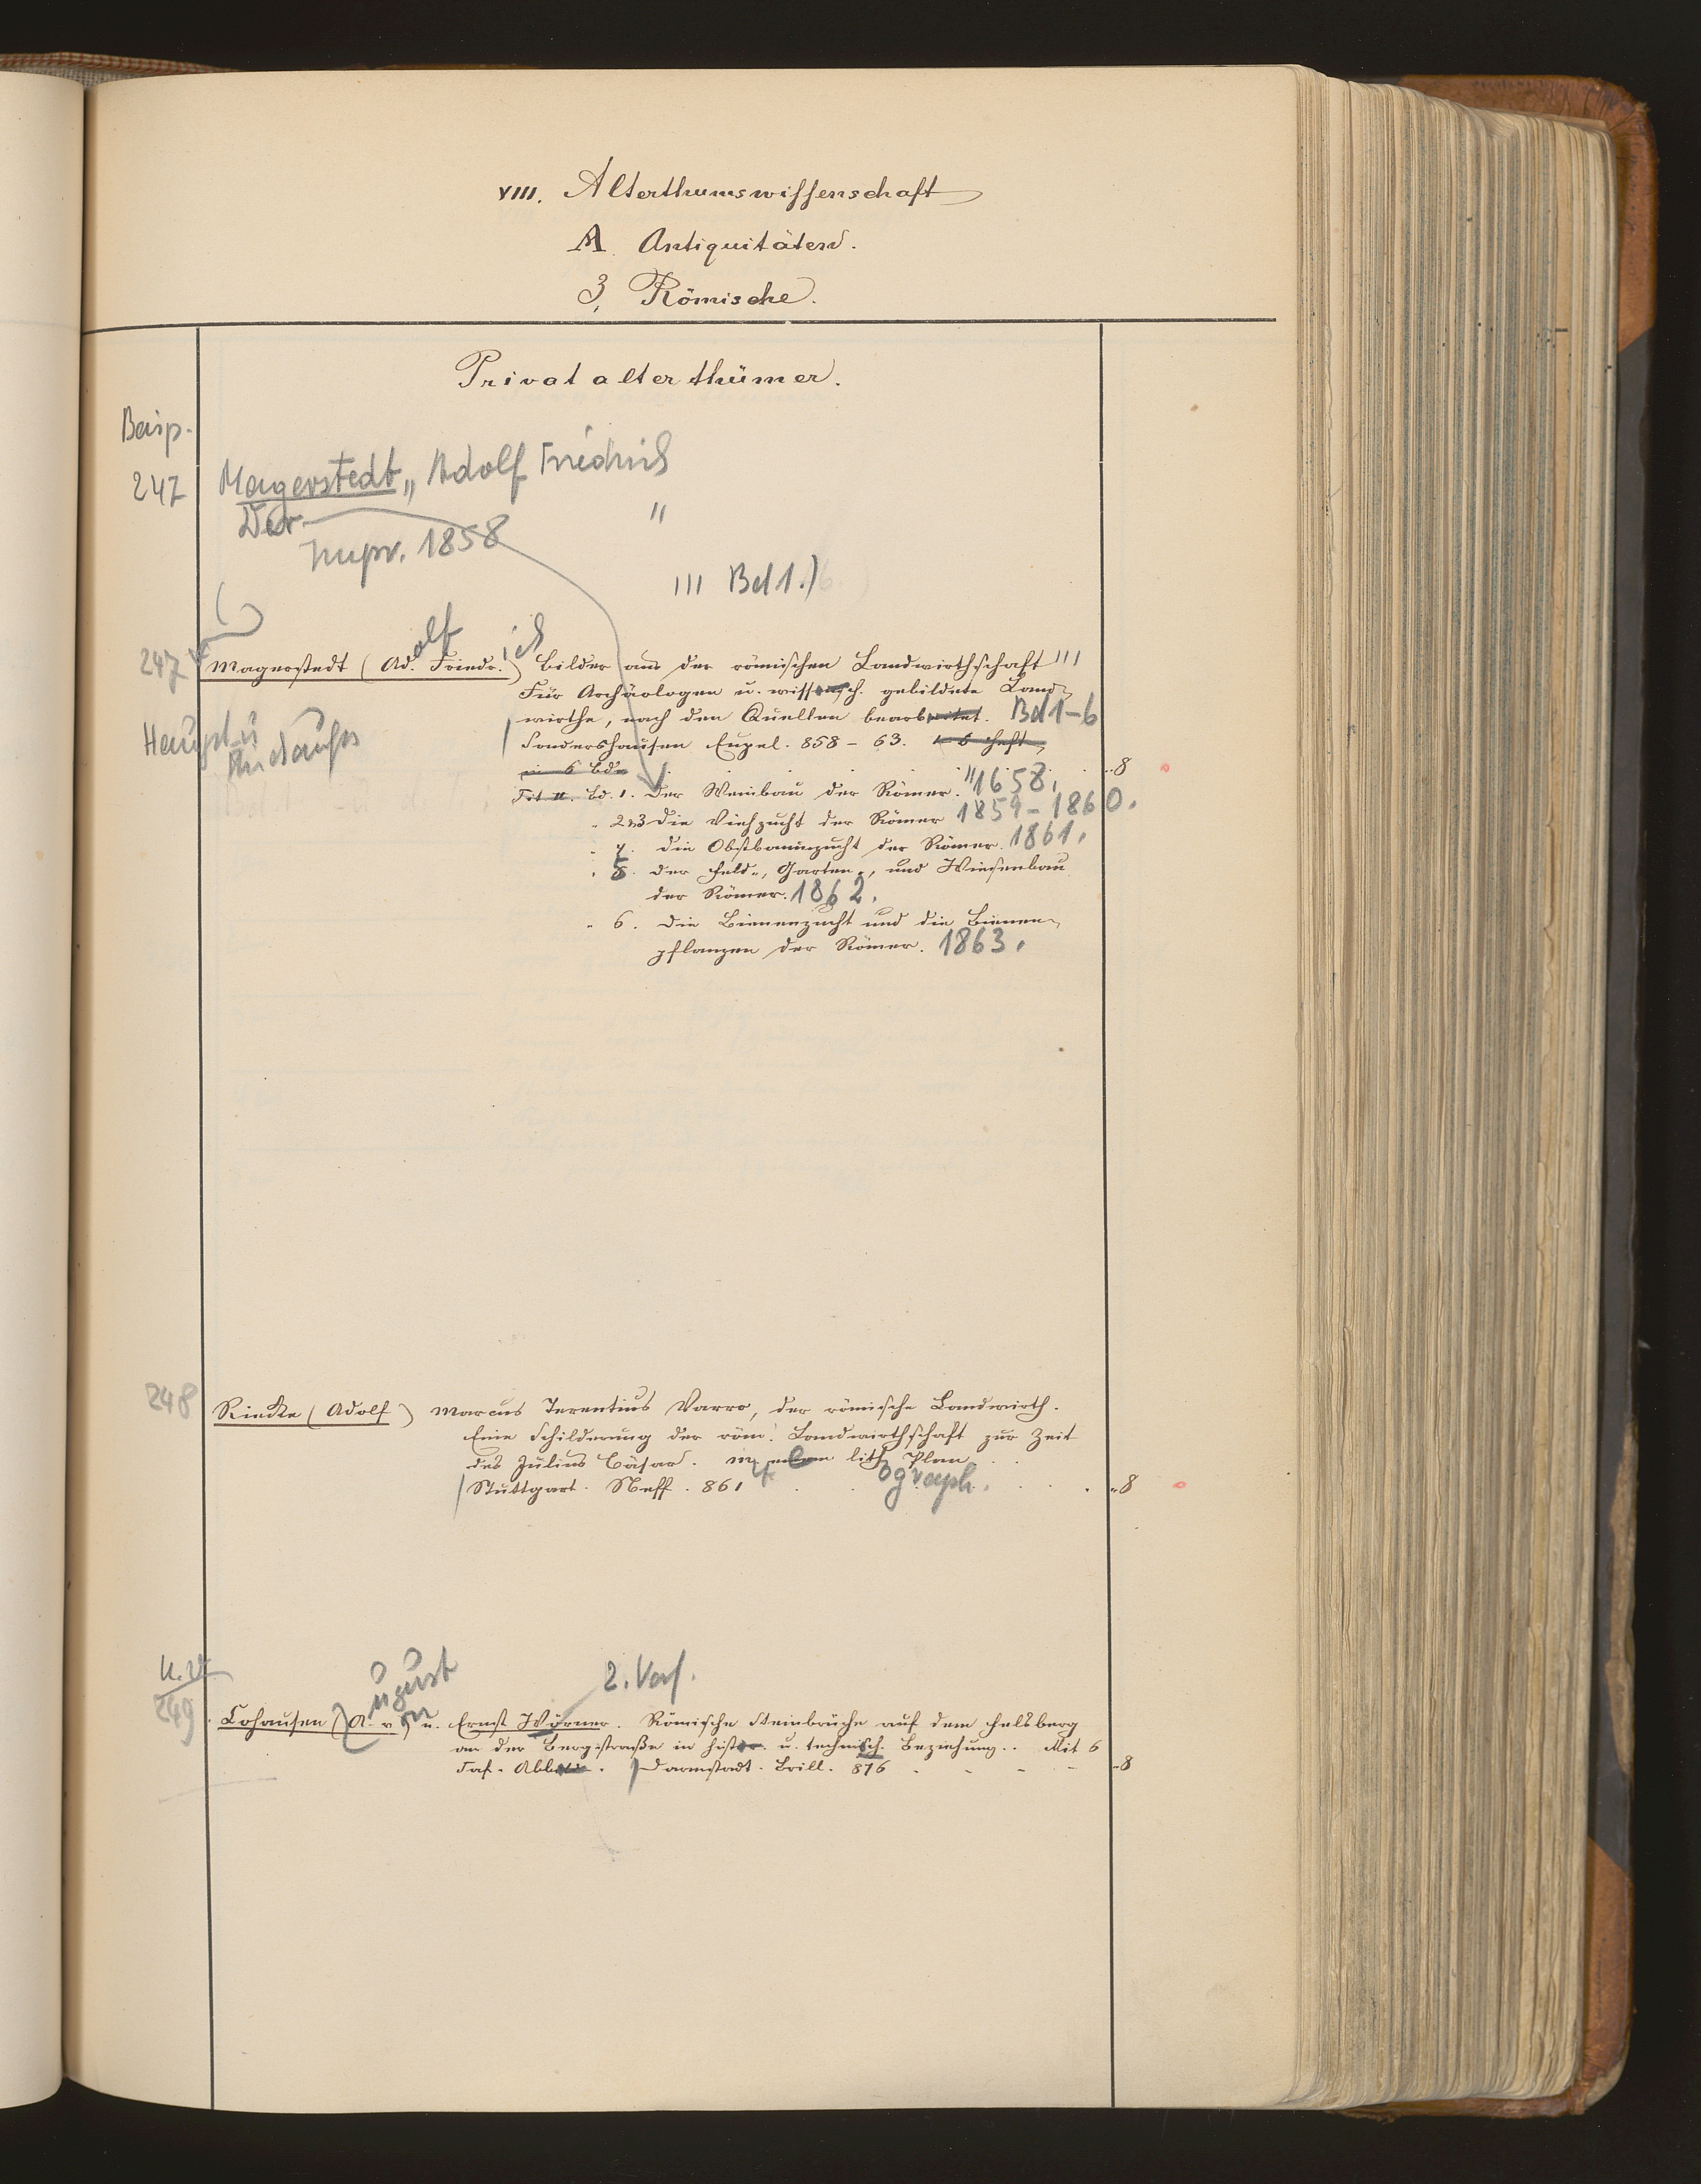 VIII. Alterthumswissenschaft
A. Antiquitäten.
3, Römische.
Privatalterthümer.
Beisp.
247 Magerstedt,, Adolf Friedrich
Der "
Impr. 1858
III Bd 1.)
247 Magerstedt (Ad.olf Friedr.ich) Bilder aus der römischen Landwirthschaft III
Für Archäologen u. wissensch. gebildete Land-
wirthe, nach den Quellen bearbeitet. Bd 1-6
Haupt u
Sondershausen Eupel. 858 - 63. 6 Hefte
in 6 Bd. 8
Tit II. Bd. 1. Der Weinbau der Römer. "1658.
" 2u3 Die Viehzucht der Römer 1859-1860.
" 4. die Obstbaumzucht der Römer. 1861.
" 5. der Feld-, Garten-, und Wiesenbau
der Römer. 1862.
" 6. die Bienenzucht und die Bienen-
pflanzen der Römer. 1863.
248 Riecke (Adolf) Marcus Terentius Varro, der römische Landwirth.
Eine Schilderung der röm. Landwirthschaft zur Zeit
des Julius Cäsar. Mit einem lith. Plan
ograph.
Stuttgart. Neff. 861 8
2. Verf.
ugust
249 Cohausen (A. v.) u. Ernst Wörner. Römische Steinbrüche auf dem Felsberg
an der Bergstraße in histor. u. technisch. Beziehung.. Mit 6
Taf. Abbild. Darmstadt. Brill. 876 8